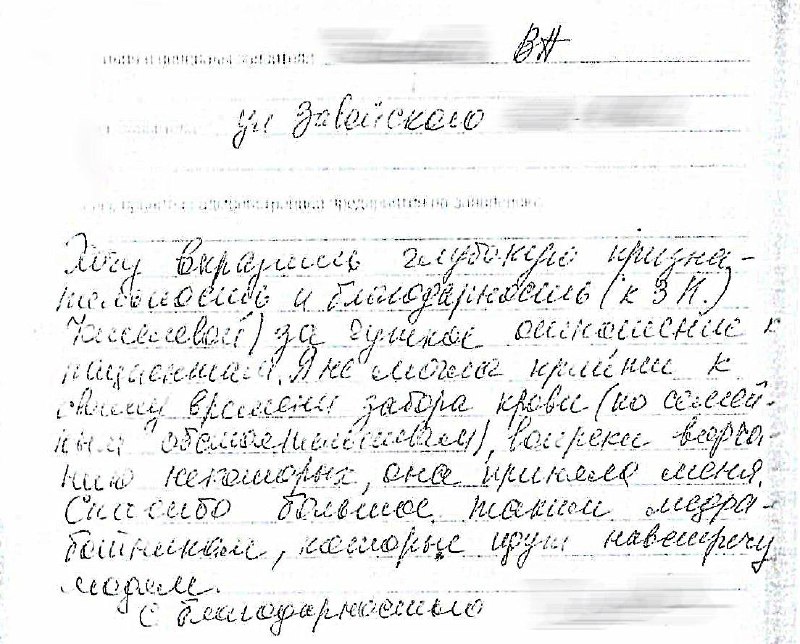 ВА
ул Завойского
Хочу выразить глубокую призна-
тельность и благодарность (к З И.)
за чуткое отношение к
пациентам. Я не могла прийти к
своему времени забора крови (по семей-
ным обстоятельствам), вопреки ворча-
нию некоторых, она приняла меня.
Спасибо большое таким медра-
ботникам, которые идут навстречу
людям.
С благодарностью